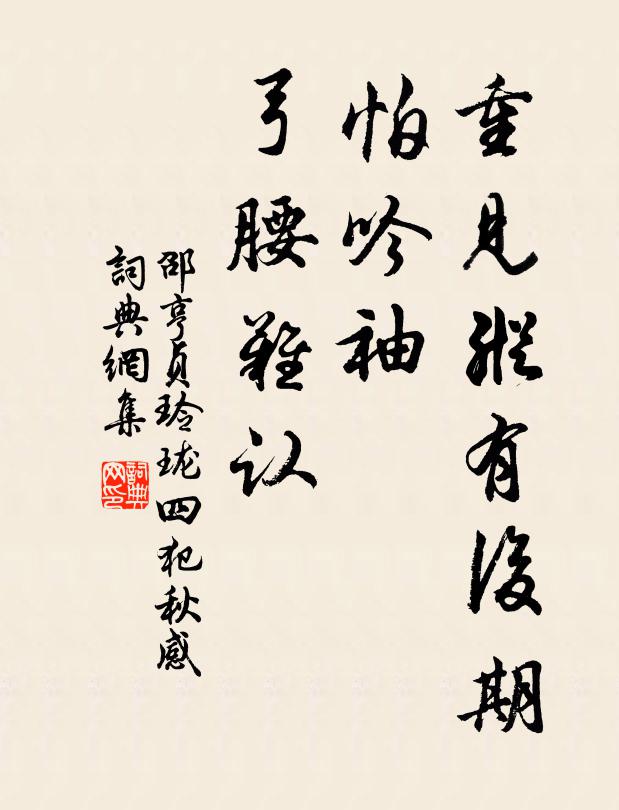 重見縱有後期
怕吟袖
弓腰難认
邵亨貞玲瓏四犯秋感
詞典網集
詞典网印